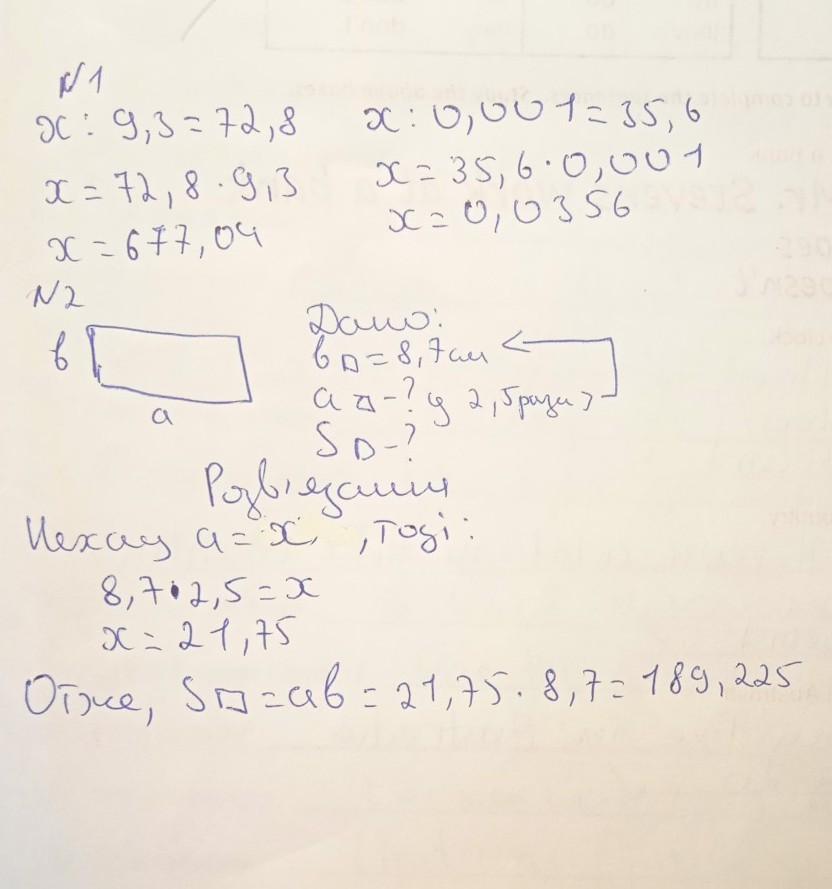 N1
x : 9,3 = 72,8
x = 72,8 · 9,3
x = 677,04
x : 0,001 = 35,6
x = 35,6 · 0,001
x = 0,0356
N2
Дано:
в
в▱ = 8,7см
a▱ - ? у 2,5 рази >
a
S▱ - ?
Розв'язання
Нехай a = x , тоді:
8,7 · 2,5 = x
x = 21,75
Отже, S▱ = aв = 21,75 · 8,7 = 189,225